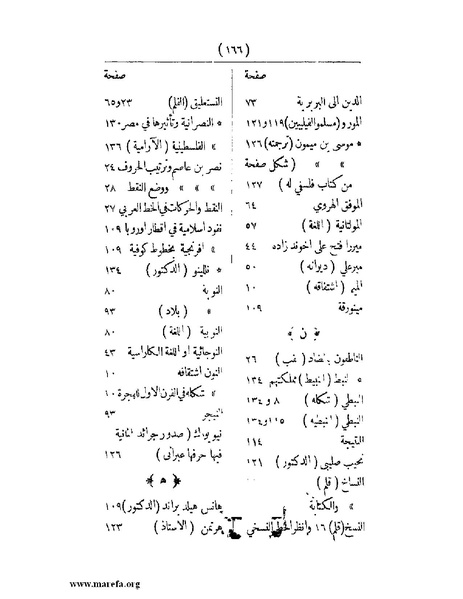 ( ١٦٦ )
صفحة
الدين الى البربرية ٧٣
المورو(مسلموالفيليبيين)١١٩و١٢١
* موسى بن ميمون (ترجمته) ١٢٦
» » ( شكل صفحة
من كتاب فلسفي له ) ١٢٧
الموفق الهروي ٦٤
المولتانية ( اللغة ) ٥٧
ميرزا فتح على اخوند زاده ٤٤
ميرعلي ( ديوانه ) ٥٠
الميم ( اشتقاقه ) ١٠
مينورقة ١٠٩
﴿ ن ﴾
الناطقون بالضاد ( لقب ) ٢٦
* نبط ( النبيط ) مملكتهم ١٣٤
النبطي ( شكله ) ٨ و ١٣٤
النبطي ( النبطيه ) و١٣٤
النتيجة ١١٤
نجيب صليبي ( الدكتور ) ١٢١
النساخ ( قلم )
» والكتابة
النسخ (قلم) ١٦ وانظر الخط النسخي
صفحة
النستعليق (القلم) ٢٣و٦٥
* النصرانية وتأثيرها في مصر ١٣٠
» الفلسطينية ( الآرامية ) ١٣٦
نصر بن عاصم وترتيب الحروف ٢٤
» » » ووضع النقط ٢٨
النقط والحركات في الخط العربي ٢٧
نقود اسلامية في اقطار اوروبا ١٠٩
» افرنجية مخطوط كوفية ١٠٩
* نللينو ( الدكتور ) ١٣٤
النوبة ٨٠
» ( بلاد ) ٩٣
النوبية ( اللغة ) ٨٠
النوجائية او اللغة الكاراسية ٤٣
النون اشتقاقه ١٠
» شكله في القرن الاول للهجرة ١٠
النيجر ٩٣
نيويورك ( صدور جرائد المانية
فيها حرفها عبراني ) ١٢٦
﴿ ه ﴾
هانس هيلد براند (الدكتور) ١٠٩
هرتمن ( الاستاذ ) ١٢٣
www.marefa.org